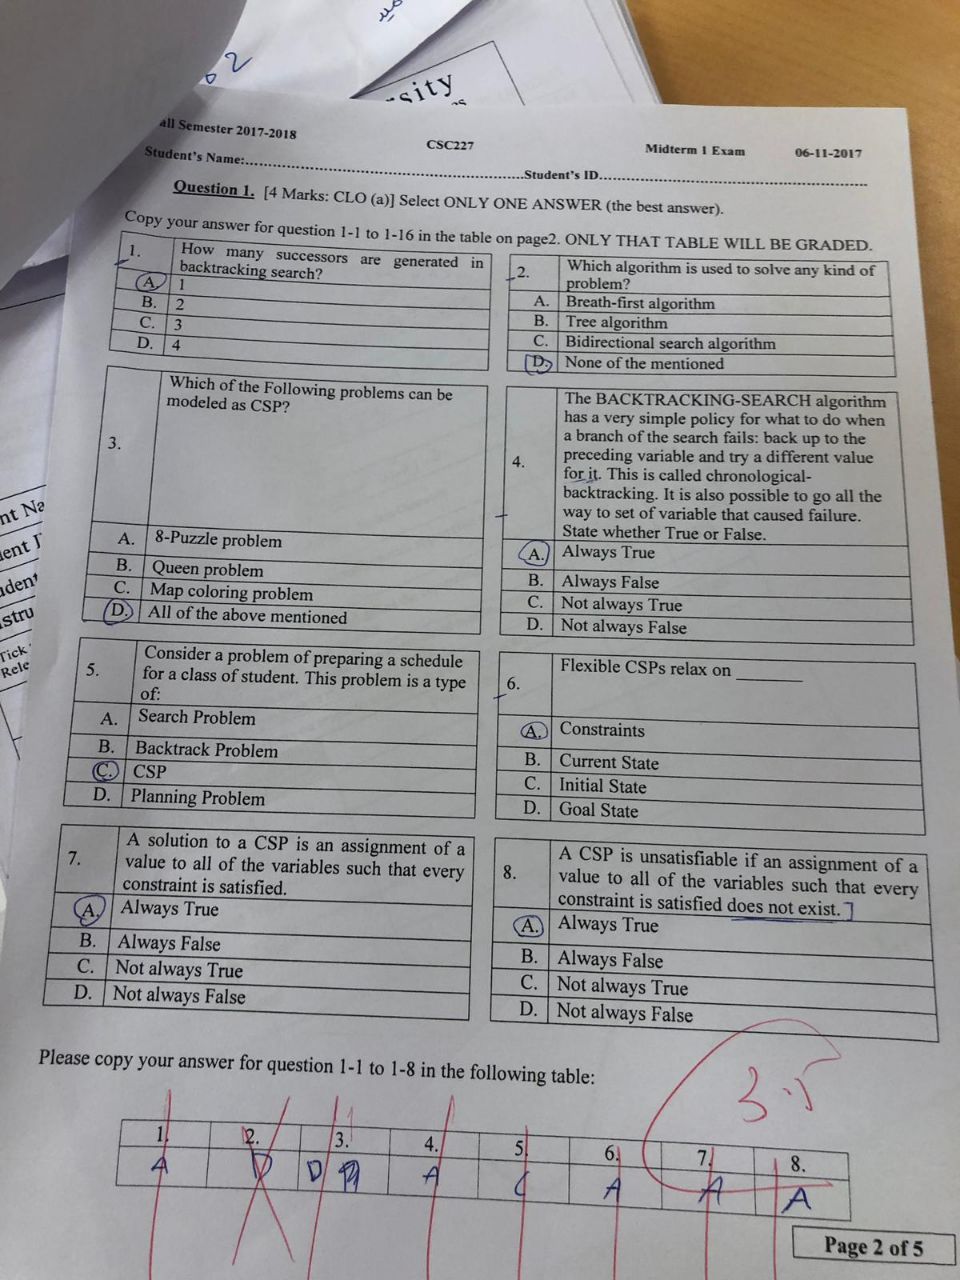 62
sity
all Semester 2017-2018
CSC227
Midterm 1 Exam
06-11-2017
Student's Name:................................................................Student's ID............................................................
Question 1. [4 Marks: CLO (a)] Select ONLY ONE ANSWER (the best answer).
Copy your answer for question 1-1 to 1-16 in the table on page2. ONLY THAT TABLE WILL BE GRADED.
1. How many successors are generated in
backtracking search?
A. 1
B. 2
C. 3
D. 4
2. Which algorithm is used to solve any kind of
problem?
A. Breath-first algorithm
B. Tree algorithm
C. Bidirectional search algorithm
D. None of the mentioned
3. Which of the Following problems can be
modeled as CSP?
A. 8-Puzzle problem
B. Queen problem
C. Map coloring problem
D. All of the above mentioned
4. The BACKTRACKING-SEARCH algorithm
has a very simple policy for what to do when
a branch of the search fails: back up to the
preceding variable and try a different value
for it. This is called chronological-
backtracking. It is also possible to go all the
way to set of variable that caused failure.
State whether True or False.
A. Always True
B. Always False
C. Not always True
D. Not always False
5. Consider a problem of preparing a schedule
for a class of student. This problem is a type
of:
A. Search Problem
B. Backtrack Problem
C. CSP
D. Planning Problem
6. Flexible CSPs relax on ________
A. Constraints
B. Current State
C. Initial State
D. Goal State
7. A solution to a CSP is an assignment of a
value to all of the variables such that every
constraint is satisfied.
A. Always True
B. Always False
C. Not always True
D. Not always False
8. A CSP is unsatisfiable if an assignment of a
value to all of the variables such that every
constraint is satisfied does not exist.
A. Always True
B. Always False
C. Not always True
D. Not always False
Please copy your answer for question 1-1 to 1-8 in the following table:
3.5
1. 2. 3. 4. 5. 6. 7. 8.
A D D A C A A A
Page 2 of 5
nt Na
dent
stru
Tick
Rele